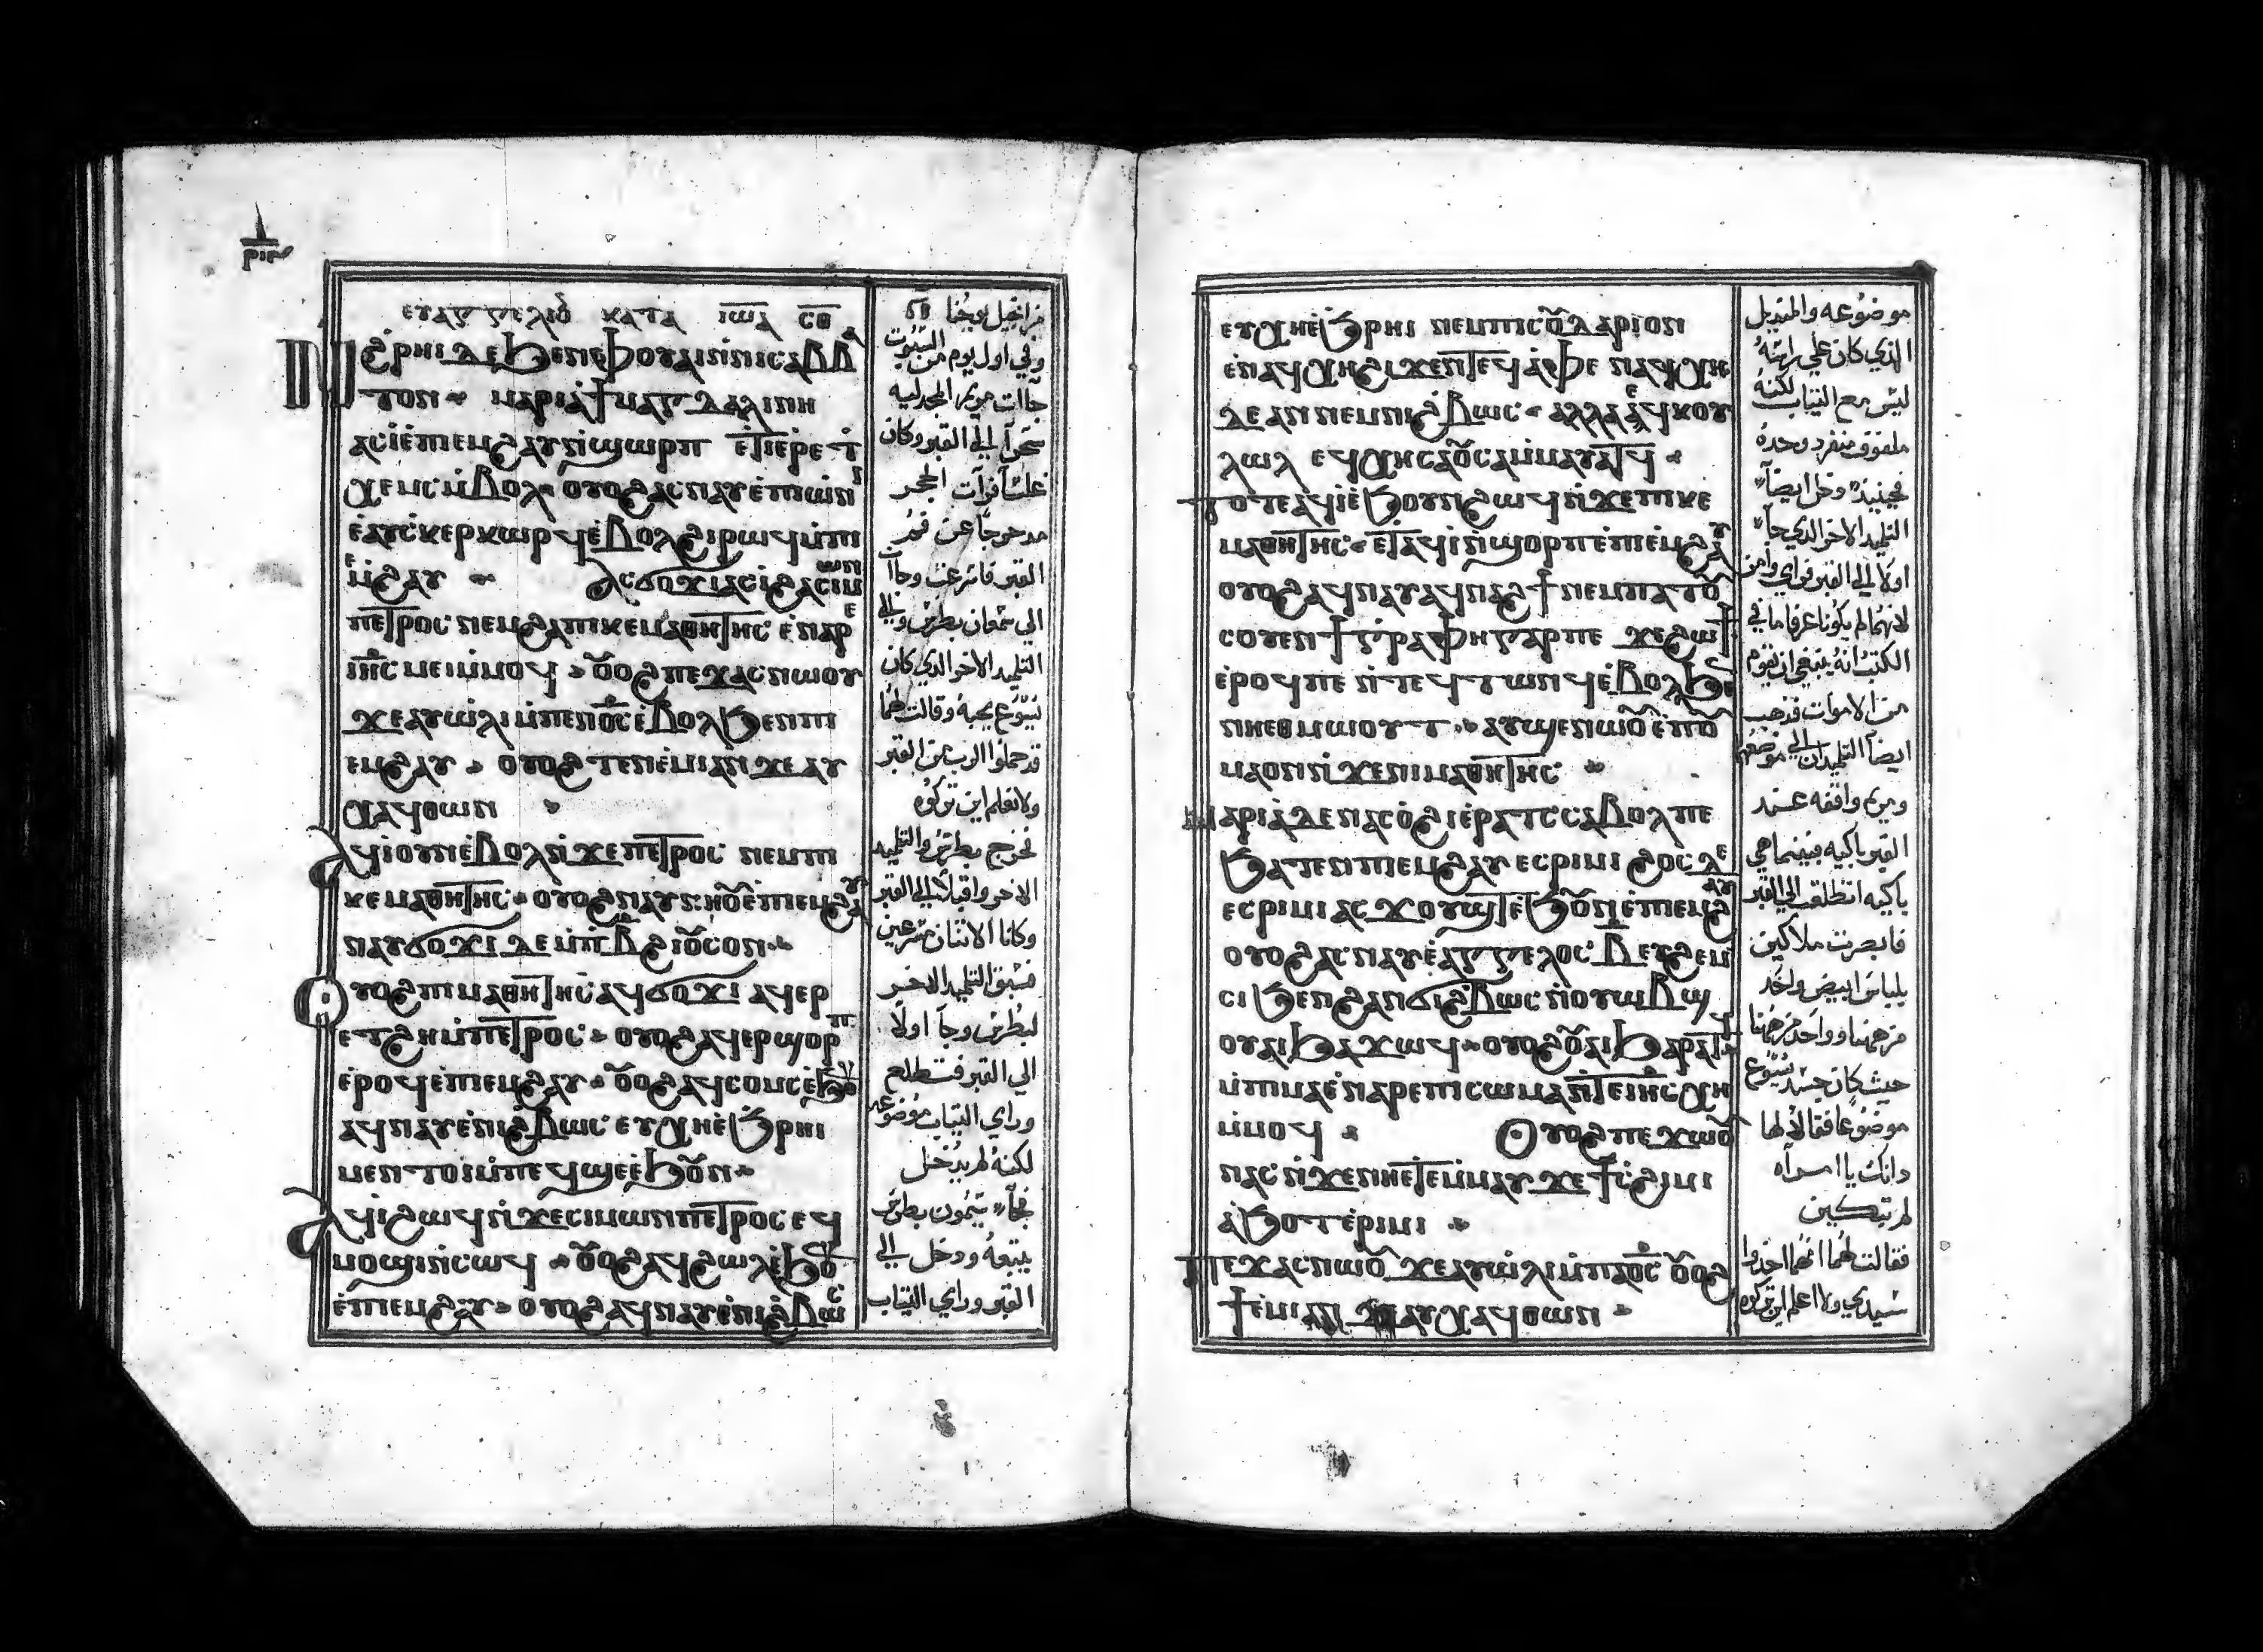 ⲉⲩⲁⲅⲅⲉⲗⲓⲟ̅ ⲕⲁⲧⲁ ⲓⲱ̅ⲁ̅ ⲥⲟ̅
ⲛ̀ϩ̀ⲣⲏⲓ ⲇⲉ ϧⲉⲛ ⲫⲟⲩⲁⲓ ⲛ̀ⲛⲓⲥⲁⲃⲃⲁ
ⲧⲟⲛ ⲙⲁⲣⲓⲁ̀ ϯⲙⲁⲅⲇⲁⲗⲓⲛⲏ
ⲁⲥⲓ̀ ⲉ̀ⲡⲓⲙ̀ϩⲁⲩ ⲛ̀ϣⲱⲣⲡ ⲉ̀ⲧⲓ ⲉ̀ⲣⲉ ϯ
ⲭⲉⲙⲥ ⲙ̀ⲃⲟⲗ ⲟⲩⲟϩ ⲁⲥⲛⲁⲩ ⲉ̀ⲡⲱ̀ⲛⲓ
ⲉ̀ⲁⲩⲥⲕⲉⲣⲕⲱⲣϥ ⲉ̀ⲃⲟⲗ ϩⲓ ⲣⲱϥ ⲙ̀ⲡⲓ
ⲙ̀ϩⲁⲩ ⲁⲥϭⲟϫⲓ ⲁⲥⲓ̀ ϩⲁ ⲥⲓⲙⲱⲛ
ⲡⲉⲧⲣⲟⲥ ⲛⲉⲙ ϩⲁ ⲡⲓⲕⲉⲙⲁⲑⲏⲧⲏⲥ ⲉ̀ⲛⲁⲣⲉ
ⲓⲏ̅ⲥ ⲙⲉⲓ ⲙ̀ⲙⲟϥ ⲟ̅ⲟϩ ⲡⲉϫⲁⲥ ⲛⲱⲟⲩ
ϫⲉ ⲁⲩⲱ̀ⲗⲓ ⲙ̀ⲡⲉⲛⲟ̅ⲥ̅ ⲉ̀ⲃⲟⲗ ϧⲉⲛ ⲡⲓ
ⲉⲙϩⲁⲩ ⲟⲩⲟϩ ⲧⲉⲛⲉ̀ⲙⲓ ⲁⲛ ϫⲉ ⲁⲩ
ⲭⲁϥ ⲑⲱⲛ
ⲁϥⲓ̀ ⲟⲩⲛ ⲉ̀ⲃⲟⲗ ⲛ̀ϫⲉ ⲡⲉⲧⲣⲟⲥ ⲛⲉⲙ ⲡⲓ
ⲕⲉⲙⲁⲑⲏⲧⲏⲥ ⲟⲩⲟϩ ⲛⲁⲩⲛⲏⲟ̅ ⲉ̀ⲡⲓⲙ̀ϩⲁⲩ
ⲛⲁⲩϭⲟϫⲓ ⲇⲉ ⲙ̀ⲡⲃ̅ ϩⲓⲟ̅ⲥⲟⲡ
ⲟⲩⲟϩ ⲡⲓⲙⲁⲑⲏⲧⲏⲥ ⲁϥϭⲟϫⲓ ⲁϥⲉⲣ
ⲉⲧϩⲏ ⲙ̀ⲡⲉⲧⲣⲟⲥ ⲟⲩⲟϩ ⲁϥⲉⲣϣⲟⲣⲡ
ⲉ̀ⲣⲟϥ ⲉ̀ⲡⲓⲙ̀ϩⲁⲩ ⲟ̅ⲟϩ ⲁϥⲥⲟⲙⲥ ⲉ̀ϧⲟ̅
ⲁϥⲛⲁⲩ ⲉ̀ⲛⲓϩ̀ⲃⲱⲥ ⲉⲩⲭⲏ ⲉ̀ϧⲣⲏⲓ
ⲙⲉⲛⲧⲟⲓ ⲙ̀ⲡⲉϥϣⲉ ⲉ̀ϧⲟ̅ⲛ
ⲁϥⲓ̀ ϩⲱϥ ⲛ̀ϫⲉ ⲥⲓⲙⲱⲛ ⲡⲉⲧⲣⲟⲥ ⲉϥ
ⲙⲟϣⲓ ⲛ̀ⲥⲱϥ ⲟ̅ⲟϩ ⲁϥϩⲱⲗ ⲉ̀ϧⲟ̅
ⲉ̀ⲡⲓⲙ̀ϩⲁⲩ ⲟⲩⲟϩ ⲁϥⲛⲁⲩ ⲉ̀ⲛⲓϩ̀ⲃⲱⲥ
من انجيل يوحنا
وفي اول يوم من السبوت
جآت مريم المجدليه
سحرآ الي القبر وكان
غلسًا فرآت الحجر
مدحرجآ عن فم
القبر فاسرعت وجآت
الي سمعان بطرس والي
التلميد الاخر الدي كان
يسوع يحبه وقالت لهما
قد حملوا الرب من القبر
ولا نعلم اين تركوه
فخرج بطرس والتلميد
الاخر واقبلا الي القبر
وكانا الاثنان مسرعين
فسبق التلميد الاخر
لبطرس وجآ اولًا
الي القبر فتطلع
وراي التياب موضوعه
لكنه لم يدخل
فجآء سمون بطرس
يتبعه ودخل الي
القبر وراي التياب
ⲉⲩⲭⲏ ⲉ̀ϧⲣⲏⲓ ⲛⲉⲙ ⲡⲓⲥⲟ̅ⲇⲁⲣⲓⲟⲛ
ⲉ̀ⲛⲁϥⲭⲏ ϩⲓϫⲉⲛ ⲧⲉϥⲁ̀ⲫⲉ ⲛⲁϥⲭⲏ
ⲇⲉ ⲁⲛ ⲛⲉⲙ ⲛⲓϩ̀ⲃⲱⲥ ⲁⲗⲗⲁ ⲉ̀ⲁϥⲕⲟⲩ
ⲗⲱⲗ ⲉϥⲭⲏ ⲥⲁⲟ̅ⲥⲁ ⲙ̀ⲙⲁⲩⲁⲧϥ
ⲧⲟⲧⲉ ⲁϥⲓ̀ ⲉ̀ϧⲟⲩⲛ ϩⲱϥ ⲛ̀ϫⲉ ⲡⲓⲕⲉ
ⲙⲁⲑⲏⲧⲏⲥ ⲉ̀ⲧⲁϥⲓ̀ ⲛ̀ϣⲟⲣⲡ ⲉ̀ⲡⲓⲙ̀ϩⲁⲩ
ⲟⲩⲟϩ ⲁϥⲛⲁⲩ ⲁϥⲛⲁϩϯ ⲛⲉⲙⲡⲁⲧⲟ̅
ⲥⲟⲩⲉⲛ ϯⲅⲣⲁⲫⲏ ⲅⲁⲣ ⲡⲉ ϫⲉ ϩⲱϯ
ⲉ̀ⲣⲟϥ ⲡⲉ ⲛ̀ⲧⲉϥⲧⲱⲛϥ ⲉ̀ⲃⲟⲗ ϧⲉ
ⲛⲏⲉⲑⲙⲱⲟⲩⲧ ⲁⲩϣⲉⲛⲱⲟ̅ ⲉ̀ⲡⲟ̅
ⲙⲁ ⲟⲛ ⲛ̀ϫⲉ ⲛⲓⲙⲁⲑⲏⲧⲏⲥ
ⲙⲁⲣⲓⲁ̀ ⲇⲉ ⲛⲁⲥⲟ̀ϩⲓ ⲉ̀ⲣⲁⲧⲥ ⲥⲁⲃⲟⲗ ⲡⲉ
ϧⲁⲧⲉⲛ ⲡⲓⲙ̀ϩⲁⲩ ⲉⲥⲣⲓⲙⲓ ϩⲟⲥ ⲇⲉ
ⲉⲥⲣⲓⲙⲓ ⲁⲥϫⲟⲩϣⲧ ⲉ̀ϧⲟ̅ⲛ ⲉ̀ⲡⲓⲙ̀ϩⲁⲩ
ⲟⲩⲟϩ ⲁⲥⲛⲁⲩ ⲉ̀ⲁⲅⲅⲉⲗⲟⲥ ⲃ̅ ⲉⲩϩⲉⲙ
ⲥⲓ ϧⲉⲛ ϩⲁⲛϩ̀ⲃⲱⲥ ⲛ̀ⲟⲩⲱⲃϣ
ⲟⲩⲁⲓ ϧⲁϫⲱϥ ⲟⲩⲟϩ ⲟ̅ⲁⲓ ϧⲁⲣⲁⲧϥ
ⲙ̀ⲡⲓⲙⲁ ⲉ̀ⲛⲁⲣⲉ ⲡⲓⲥⲱⲙⲁ ⲛ̀ⲧⲉ ⲓⲏ̅ⲥ ⲭⲏ
ⲙ̀ⲙⲟϥ ⲟⲩⲟϩ ⲡⲉϫⲱⲟ̅
ⲛⲁⲥ ⲛ̀ϫⲉ ⲛⲏⲉⲧⲉⲙ̀ⲙⲁⲩ ϫⲉ ϯⲥ̀ϩⲓⲙⲓ
ⲁ̀ϧⲟ ⲧⲉⲣⲓⲙⲓ
ⲡⲉϫⲁⲥ ⲛⲱⲟ̅ ϫⲉ ⲁⲩⲱ̀ⲗⲓ ⲙ̀ⲡⲁⲟ̅ⲥ̅ ⲟ̅ⲟϩ
ϯⲉ̀ⲙⲓ ⲁⲛ ϫⲉ ⲁⲩⲭⲁϥ ⲑⲱⲛ
موضوعه والمنديل
الذي كان علي راسه
ليس مع التياب لكنه
ملفوف منفرد وحده
فحينيذ دخل ايضآ
التلميد الاخر الدي جآ
اولا الي القبر فراي وامن
لانهما لم يكونا عرفا ما في
الكتب انه ينبغي ان يقوم
من الاموات فذهب
ايضآ التلميدان الي موضعهم
ومريم واقفه عند
القبر باكيه فبينما هي
باكيه انطلقت الي القبر
فابصرت ملاكين
بلباس ابيض واحد
من هنا وواحد من هنا
حيث كان جسد يسوع
موضوعا فقالا لها
دانك يا امرآه
لم تبكين
فقالت لهما انهما اخدوا
سيدي ولا اعلم اين تركوه